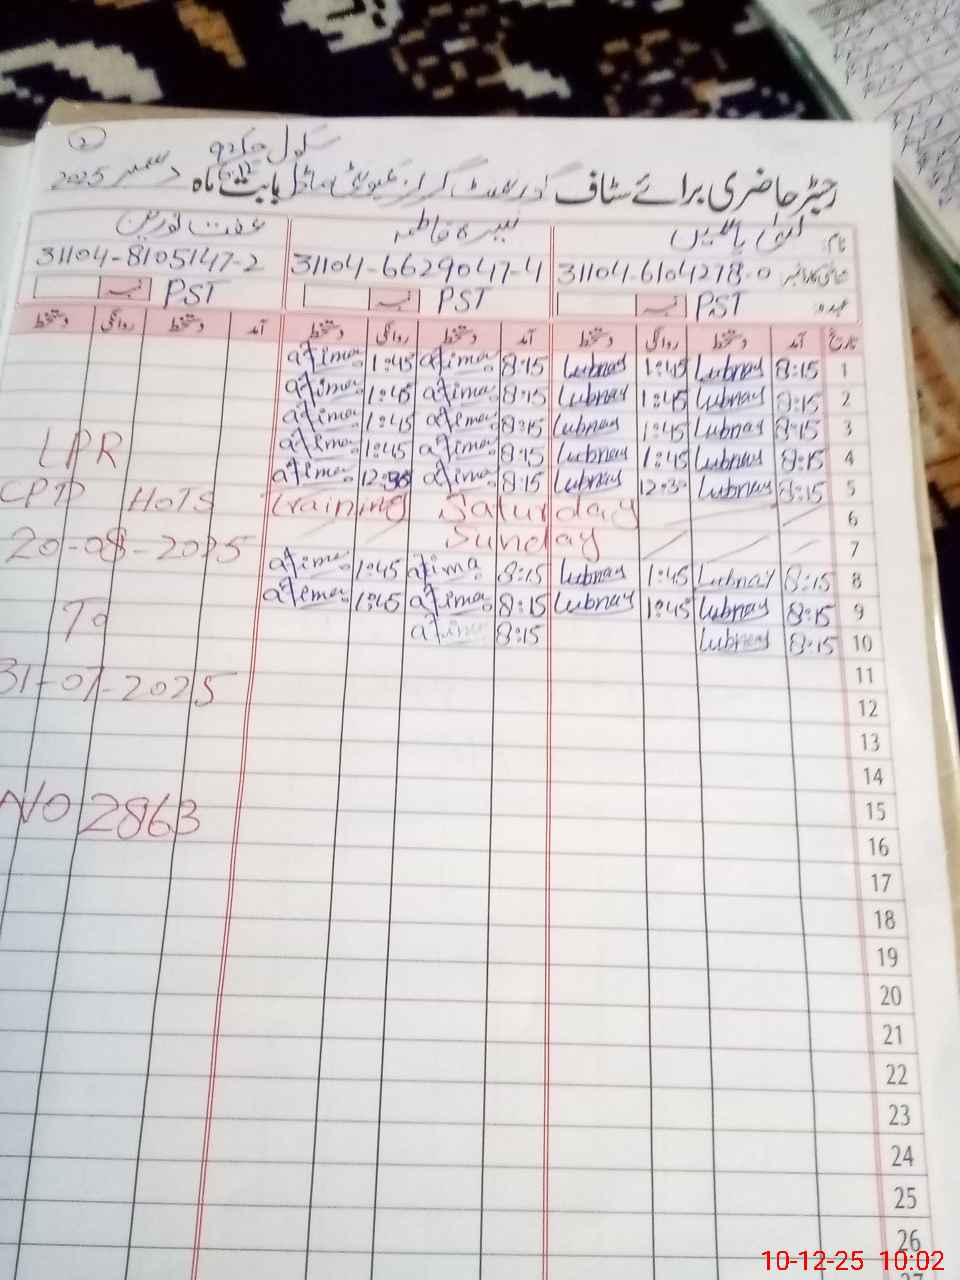 ۲
سکول جادو
رجسٹر حاضری برائے سٹاف گورنمنٹ گرلز کمیونٹی ماڈل بابت ماہ دسمبر 2025
نام: لبنیٰ یاسمین نمیرہ فاطمہ عفت نورین
شناختی کارڈ نمبر 31104-6104278-0 31104-6629047-4 31104-8105147-2
عہدہ PST PST PST
تاریخ آمد دستخط روانگی دستخط آمد دستخط روانگی دستخط آمد دستخط روانگی دستخط
1 8:15 Lubnay 1:45 Lubnay 8:15 afima 1:45 afima
2 8:15 Lubnay 1:45 Lubnay 8:15 afima 1:45 afima
3 8:15 Lubnay 1:45 Lubnay 8:15 afima 1:45 afima
4 8:15 Lubnay 1:45 Lubnay 8:15 afima 1:45 afima
LPR
5 8:15 Lubnay 12:30 Lubnay 8:15 afima 12:30 afima
CPD HOTS Training Saturday
6
Sunday
7
20-08-2025
8 8:15 Lubnay 1:45 Lubnay 8:15 afima 1:45 afima
9 8:15 Lubnay 1:45 Lubnay 8:15 afima 1:45 afima
To
10 8:15 Lubnay 8:15 afima
11
31-07-2025
12
13
14
15
NO 2863
16
17
18
19
20
21
22
23
24
25
26
27
10-12-25 10:02